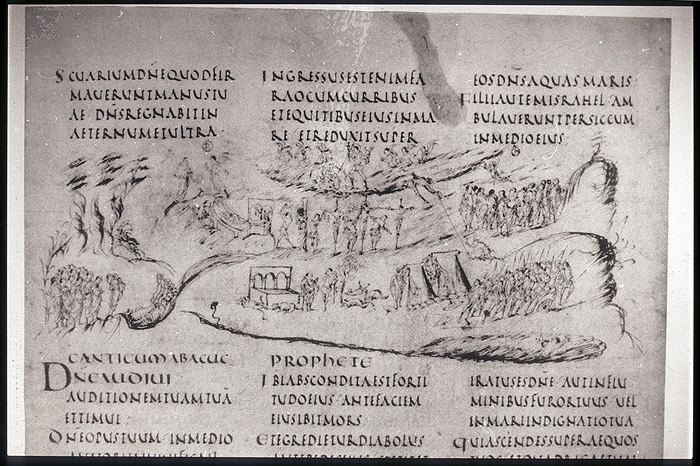 SCUARIUM DNE QUOD FIR
MAUERUNT MANUS TU
AE DNS REGNABIT IN
AETERNUM ET ULTRA·
INGRESSUS EST ENIM FA
RAO CUM CURRIBUS
ET EQUITIBUS EIUS IN MA
RE ET REDUXIT SUPER
EOS DNS AQUAS MARIS
FILII AUTEM ISRAHEL AM
BULAUERUNT PER SICCUM
IN MEDIO EIUS·
CANTICUM ABACUC PROPHETE
DNE AUDIUI
AUDITIONEM TUAM TUA
ET TIMUI·
DNE OPUS TUUM IN MEDIO
IBI ABSCONDITA EST FORTI
TUDO EIUS ANTE FACIEM
EIUS IBIT MORS
ET EGREDIETUR DIABOLUS
IRATUS ES DNE AUT IN FLU
MINIBUS FUROR TUUS UEL
IN MARI INDIGNATIO TUA
QUI ASCENDES SUPER AEQUOS